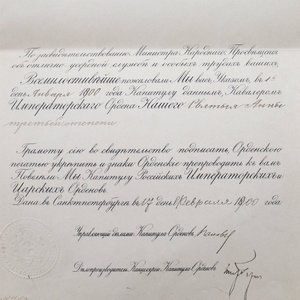 По засвидетельствованію Министра Народнаго Просвѣщенія
объ отлично усердной службѣ и особыхъ трудахъ вашихъ,
Всемилостивѣйше пожаловали Мы васъ Указомъ, въ 1
день Января 1900 года Капитулу даннымъ, Кавалеромъ
Императорскаго Ордена Нашего Святыя Анны
третьей степени
Грамоту сію во свидѣтельство подписать, Орденскою
печатью укрѣпить и знаки Орденскіе препроводить къ вамъ
Повелѣли Мы Капитулу Россійскихъ Императорскихъ и
Царскихъ Орденовъ.
Дана въ Санктпетербургѣ въ 17 день Февраля 1900 года
Управляющій дѣлами Капитула Орденовъ
Дѣлопроизводитель Канцеляріи Капитула Орденовъ